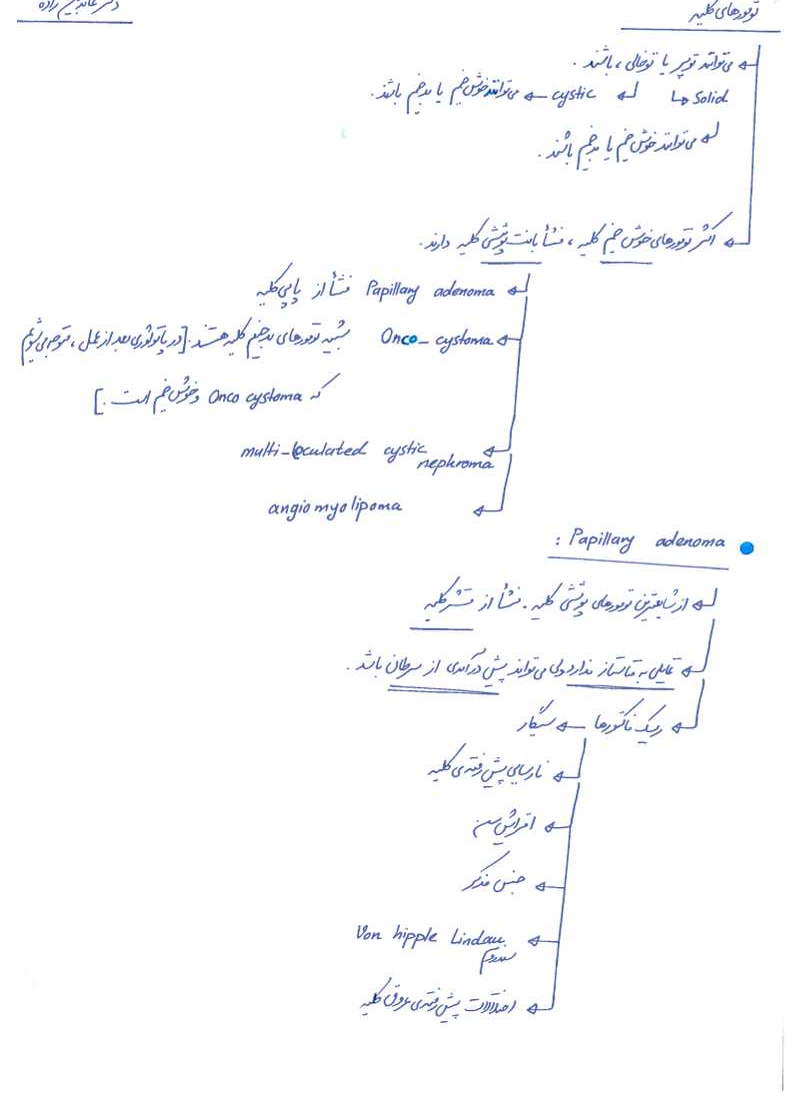 تومورهای کلیه
می‌توانند توپر یا توخالی، باشند.
Solid cystic می‌توانند خوش‌خیم یا بدخیم باشند.
می‌توانند خوش‌خیم یا بدخیم باشند.
اکثر تومورهای خوش‌خیم کلیه، منشأ بافت پوششی کلیه دارند.
Papillary adenoma منشأ از پاپی کلیه
Onco_cystoma شبیه تومورهای بدخیم کلیه هستند. [در پاتولوژی بعد از عمل، متوجه می‌شویم
که Onco cystoma و خوش‌خیم است.]
multi-loculated cystic
nephroma
angiomyolipoma
Papillary adenoma :
از شایعترین تومورهای پوششی کلیه. منشأ از قشر کلیه
تمایلی به متاستاز ندارد ولی می‌تواند پیش درآمدی از سرطان باشد.
ریسک فاکتورها سیگار
نارسایی پیش رفته‌ی کلیه
افزایش سن
جنس مذکر
Von hipple Lindau
سندروم
اختلالات پیش رفته‌ی عروق کلیه